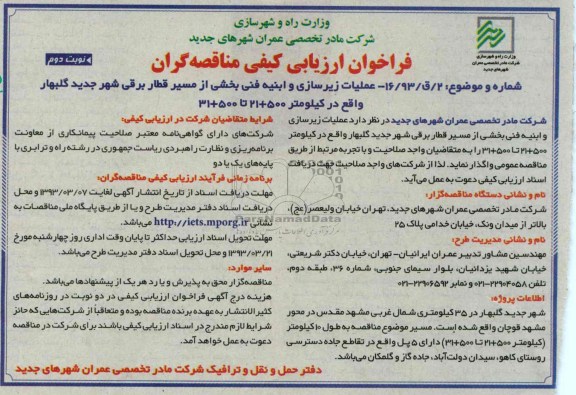 وزارت راه و شهرسازی
شرکت مادر تخصصی عمران شهرهای جدید
فراخوان ارزیابی کیفی مناقصه‌گران
نوبت دوم
وزارت راه و شهرسازی
شرکت مادر تخصصی عمران
شهرهای جدید
شماره و موضوع: ۲/ق/۱۶/۹۳- عملیات زیرسازی و ابنیه فنی بخشی از مسیر قطار برقی شهر جدید گلبهار
واقع در کیلومتر ۵۰۰+۲۱ تا ۵۰۰+۳۱
شرکت مادر تخصصی عمران شهرهای جدید در نظر دارد عملیات زیرسازی
و ابنیه فنی بخشی از مسیر قطار برقی شهر جدید گلبهار واقع در کیلومتر
۵۰۰+۲۱ تا ۵۰۰+۳۱ را به متقاضیان واجد صلاحیت و با تجربه مرتبط از طریق
مناقصه عمومی واگذار نماید. لذا از شرکت‌های واجد صلاحیت جهت دریافت
اسناد ارزیابی کیفی دعوت به عمل می‌آید.
نام و نشانی دستگاه مناقصه‌گزار:
شرکت مادر تخصصی عمران شهرهای جدید، تهران خیابان ولیعصر(عج)،
بالاتر از میدان ونک، خیابان خدامی پلاک ۲۵
نام و نشانی مدیریت طرح:
مهندسین مشاور تدبیر عمران ایرانیان- تهران، خیابان دکتر شریعتی،
خیابان شهید یزدانیان، بلوار سیمای جنوبی، شماره ۳۶، طبقه دوم،
تلفن ۲۲۹۰۴۰۵۸-۰۲۱ و نمابر ۲۲۹۰۶۵۹۲-۰۲۱
اطلاعات پروژه:
شهر جدید گلبهار در ۳۵ کیلومتری شمال غربی مشهد مقدس در محور
مشهد قوچان واقع شده است. مسیر موضوع مناقصه به طول ۱۰ کیلومتر
(کیلومتر ۵۰۰+۲۱ تا ۵۰۰+۳۱) دارای ۵ پل واقع در تقاطع جاده دسترسی
روستای کاهو، سیدان دولت‌آباد، جاده گاز و گلمکان می‌باشد.
شرایط متقاضیان شرکت در ارزیابی کیفی:
شرکت‌های دارای گواهی‌نامه معتبر صلاحیت پیمانکاری از معاونت
برنامه‌ریزی و نظارت راهبردی ریاست جمهوری در رشته راه و ترابری با
پایه‌های یک یا دو
برنامه زمانی فرآیند ارزیابی کیفی مناقصه‌گران:
مهلت دریافت اسناد از تاریخ انتشار آگهی لغایت ۱۳۹۳/۰۳/۰۷ و محل
دریافت اسناد دفتر مدیریت طرح و یا از طریق پایگاه ملی مناقصات به
نشانی http://iets.mporg.ir می‌باشد.
مهلت تحویل اسناد ارزیابی حداکثر تا پایان وقت اداری روز چهارشنبه مورخ
۱۳۹۳/۰۳/۲۱ و محل تحویل اسناد دفتر مدیریت طرح می‌باشد.
سایر موارد:
مناقصه‌گزار محق به پذیرش و یا رد هر یک از پیشنهادها می‌باشد.
هزینه درج آگهی فراخوان ارزیابی کیفی در دو نوبت در روزنامه‌های
کثیرالانتشار به عهده برنده مناقصه بوده و متعاقباً از شرکت‌هایی که حائز
شرایط لازم مندرج در اسناد ارزیابی کیفی باشند برای شرکت در مناقصه
دعوت به عمل خواهد آمد.
دفتر حمل و نقل و ترافیک شرکت مادر تخصصی عمران شهرهای جدید